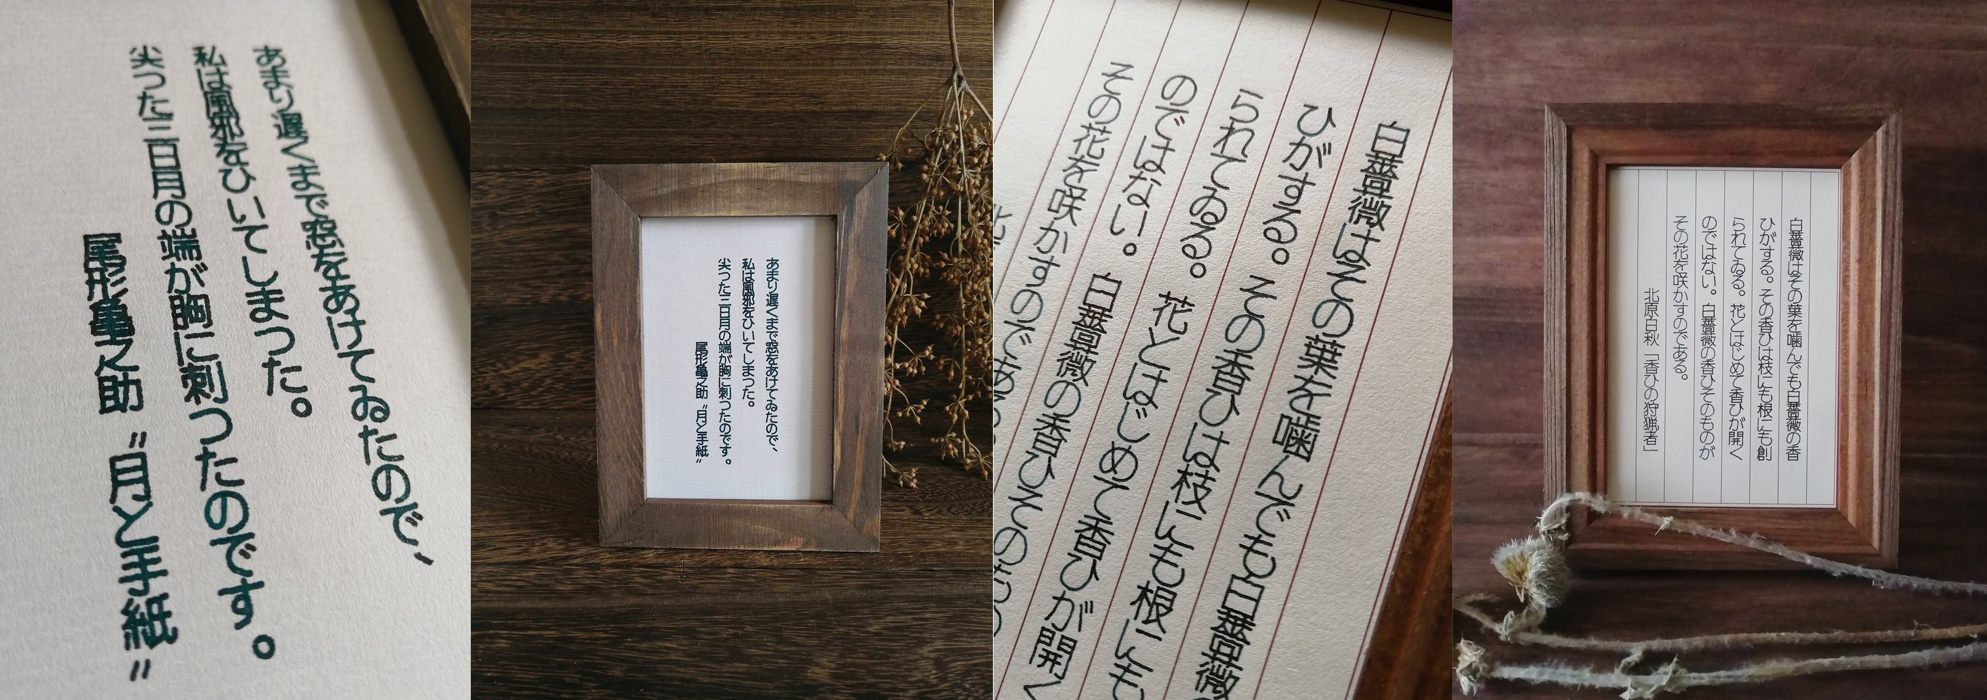 あまり遅くまで窓をあけてゐたので、
私は風邪をひいてしまつた。
尖つた三日月の端が胸に刺つたのです。
尾形亀之助 〝月と手紙〟
あまり遅くまで窓をあけてゐたので、
私は風邪をひいてしまつた。
尖つた三日月の端が胸に刺つたのです。
尾形亀之助 〝月と手紙〟
白薔薇はその葉を噛んでも白薔薇
ひがする。その香ひは枝にも根にも
られてゐる。花とはじめて香ひが開く
のではない。白薔薇の香ひそのもの
その花を咲かすのである
北
白薔薇はその葉を噛んでも白薔薇の香
ひがする。その香ひは枝にも根にも創
られてゐる。花とはじめて香ひが開く
のではない。白薔薇の香ひそのものが
その花を咲かすのである。
北原白秋「香ひの狩猟者」